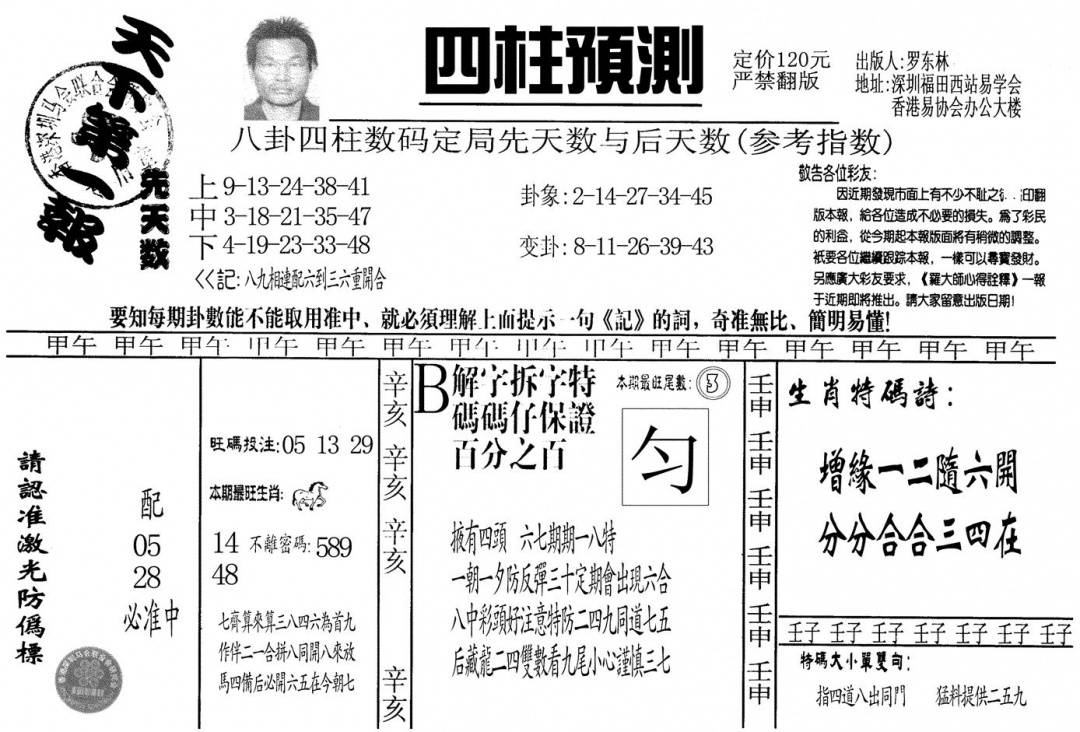 天下第一報
四柱預測
定价120元
严禁翻版
出版人:罗东林
地址:深圳福田西站易学会
香港易协会办公大楼
八卦四柱数码定局先天数与后天数(参考指数)
先天数
上 9-13-24-38-41
中 3-18-21-35-47
下 4-19-23-33-48
<<記:八九相連配六到三六重開合
卦象:2-14-27-34-45
变卦:8-11-26-39-43
敬告各位彩友:
因近期發現市面上有不少不耻之 印翻
版本報,給各位造成不必要的損失。為了彩民
的利益,從今期起本報版面將有稍微的調整。
衹要各位繼續跟踪本報,一樣可以尋寶發財。
另應廣大彩友要求,《羅大師心得詮釋》一報
于近期即將推出。請大家留意出版日期!
要知每期卦數能不能取用准中、就必須理解上面提示一句《記》的詞,奇准無比、簡明易懂!
甲午 甲午 甲午 甲午 甲午 甲午 甲午 甲午 甲午 甲午 甲午 甲午 甲午 甲午 甲午
請認准激光防僞標
配
05
28
必准中
旺碼投注:05 13 29
本期最旺生肖:
14 不離密碼:589
48
七齊算來算三八四六為首九
作伴二一合拼八同開八來放
馬四備后必開六五在今朝七
辛亥
辛亥
辛亥
辛亥
B解字拆字特
碼碼仔保證
百分之百
本期最旺尾數:3
匀
掖有四頭 六七期期一八特
一朝一夕防反彈三十定期會出現六合
八中彩頭好注意特防二四九同道七五
后藏龍二四雙數看九尾小心謹慎三七
壬申
壬申
壬申
壬申
壬申
壬申
生肖特碼詩:
增緣一二隨六開
分分合合三四在
壬子 壬子 壬子 壬子 壬子 壬子 壬子
特碼大小單雙句:
指四道八出同門 猛料提供二五九